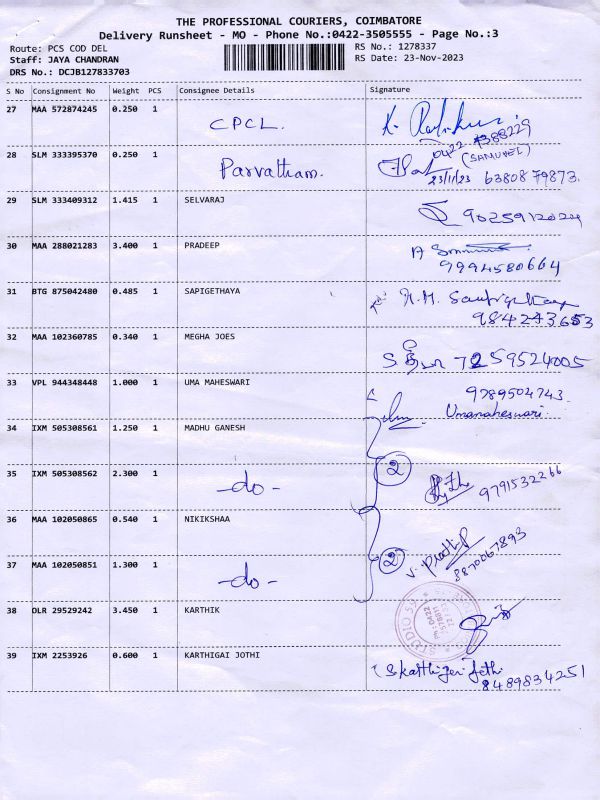 THE PROFESSIONAL COURIERS, COIMBATORE
Delivery Runsheet - MO - Phone No.:0422-3505555 - Page No.:3
Route: PCS COD DEL
Staff: JAYA CHANDRAN
DRS No.: DCJB127833703
RS No.: 1278337
RS Date: 23-Nov-2023
S No Consignment No Weight PCS Consignee Details Signature
27 MAA 572874245 0.250 1 CPCL.
0422-4388229
28 SLM 333395370 0.250 1 Parvatham. (SAMUVEL)
23/11/23 6380879873.
29 SLM 333409312 1.415 1 SELVARAJ
30 MAA 288021283 3.400 1 PRADEEP
9994580664
31 BTG 875042480 0.485 1 SAPIGETHAYA
984243653
32 MAA 102360785 0.340 1 MEGHA JOES 7259524005
33 VPL 944348448 1.000 1 UMA MAHESWARI 9789504743.
Umamaheswari.
34 IXM 505308561 1.250 1 MADHU GANESH
35 IXM 505308562 2.300 1 -do- 2 9791532266
36 MAA 102050865 0.540 1 NIKIKSHAA
37 MAA 102050851 1.300 1 -do- 2 8870067893
38 OLR 29529242 3.450 1 KARTHIK
39 IXM 2253926 0.600 1 KARTHIGAI JOTHI
8489834251